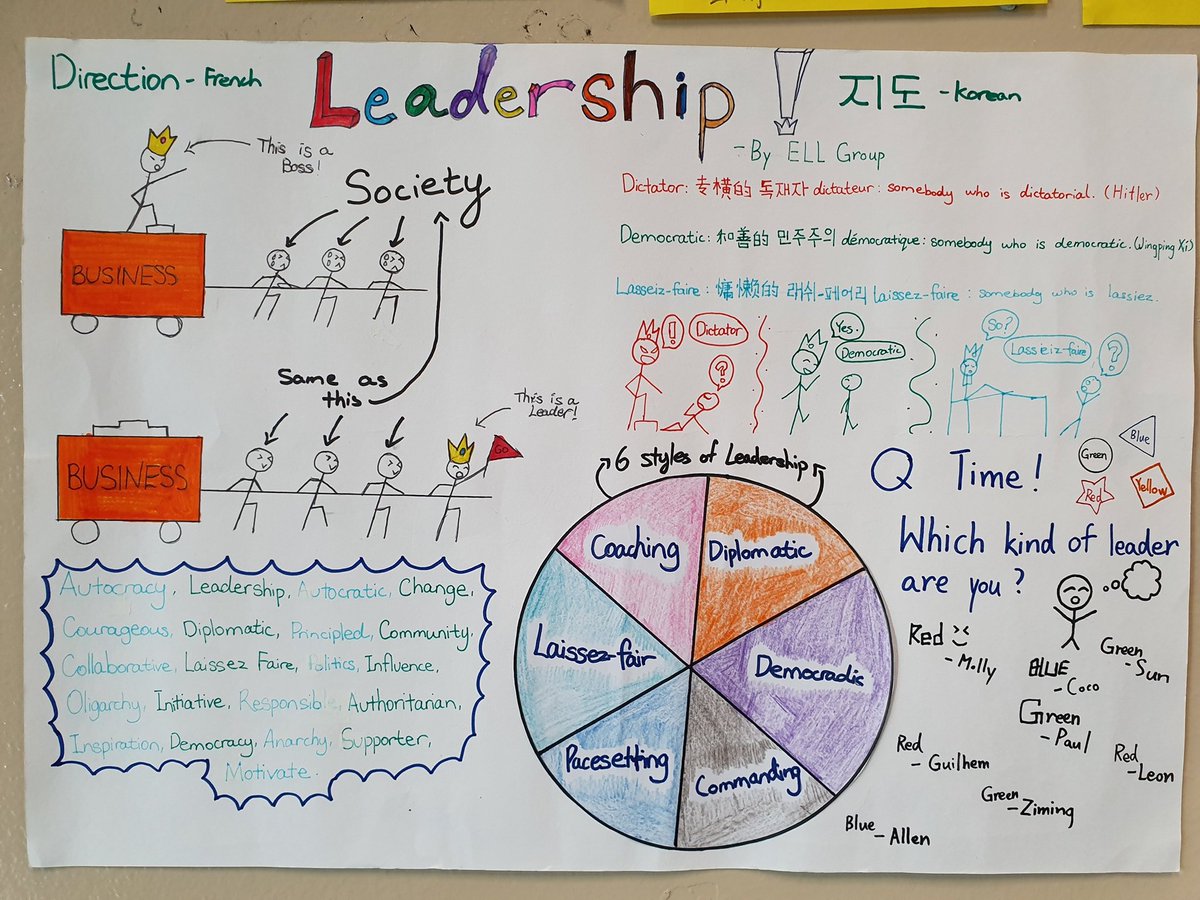 Direction - French
Leadership!
지도 - Korean
- By ELL Group
This is a
Boss!
Society
BUSINESS
Same as
this
This is a
Leader!
GO
BUSINESS
Dictator: 专横的 독재자 dictateur: somebody who is dictatorial. (Hitler)
Democratic: 和善的 민주주의 démocratique: somebody who is democratic. (Wingping Xi)
Lasseiz-faire: 慵懒的 래쉬-페어리 laissez-faire: somebody who is lassiez.
!
Dictator
?
Yes.
Democratic
So?
Lasseiz-faire
?
6 styles of Leadership
Coaching
Diplomatic
Laissez-fair
Democradic
Pacesetting
Commanding
Q Time!
Green
Blue
Red
Yellow
Which kind of leader
are you?
Red
- Molly
BLUE
- Coco
Green
- Sun
Green
- Paul
Red
- Guilhem
Red
- Leon
Green
- Ziming
Blue
- Allen
Autocracy, Leadership, Autocratic, Change,
Courageous, Diplomatic, Principled, Community,
Collaborative, Laissez Faire, Politics, Influence,
Oligarchy, Initiative, Responsible, Authoritarian,
Inspiration, Democracy, Anarchy, Supporter,
Motivate.